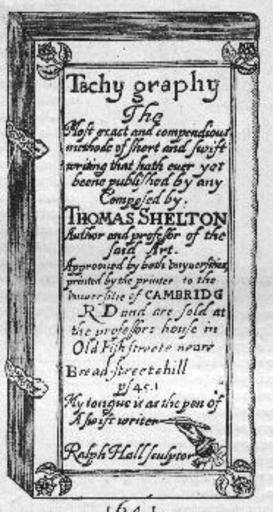 Tachy graphy
The
Most exact and compendious
methode of short and swift
writing that hath ever yet
beene published by any
Composed by.
THOMAS SHELTON
Author and professor of the
said Art.
Approoved by both
printed by the printer to the
CAMBRIDG
R D and are sold at
the professors house in
Old Fish streete neare
Bread streetehill
ps 45. 1
My tongue is as the pen of
A swift writer
Ralph Hall sculptor
1641